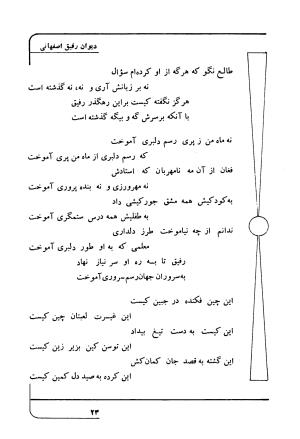 دیوان رفیق اصفهانی
طالع نگو که هرگه از او کرده‌ام سؤال
نه بر زبانش آری و نه، نه گذشته است
هرگز نگفته کیست براین رهگذر رفیق
با آنکه برسرش گه و بیگه گذشته است
نه ماه من ز پری رسم دلبری آموخت
که رسم دلبری از ماه من پری آموخت
فغان از آن مه نامهربان که استادش
نه مهرورزی و نه بنده پروری آموخت
به‌کودکیش همه مشق جورکیشی داد
به طفلیش همه درس ستمگری آموخت
ندانم از چه نیاموخت طرز دلداری
معلمی که به او طور دلبری آموخت
رفیق تا به ره او سر نیاز نهاد
به‌سروران جهان‌رسم‌سروری‌آموخت
این چین فکنده در جبین کیست
این غیرت لعبتان چین کیست
این کیست به دست تیغ بیداد
این توسن کین بزیر زین کیست
این گشته به قصد جان کمان‌کش
این کرده به صید دل کمین کیست
۲۳